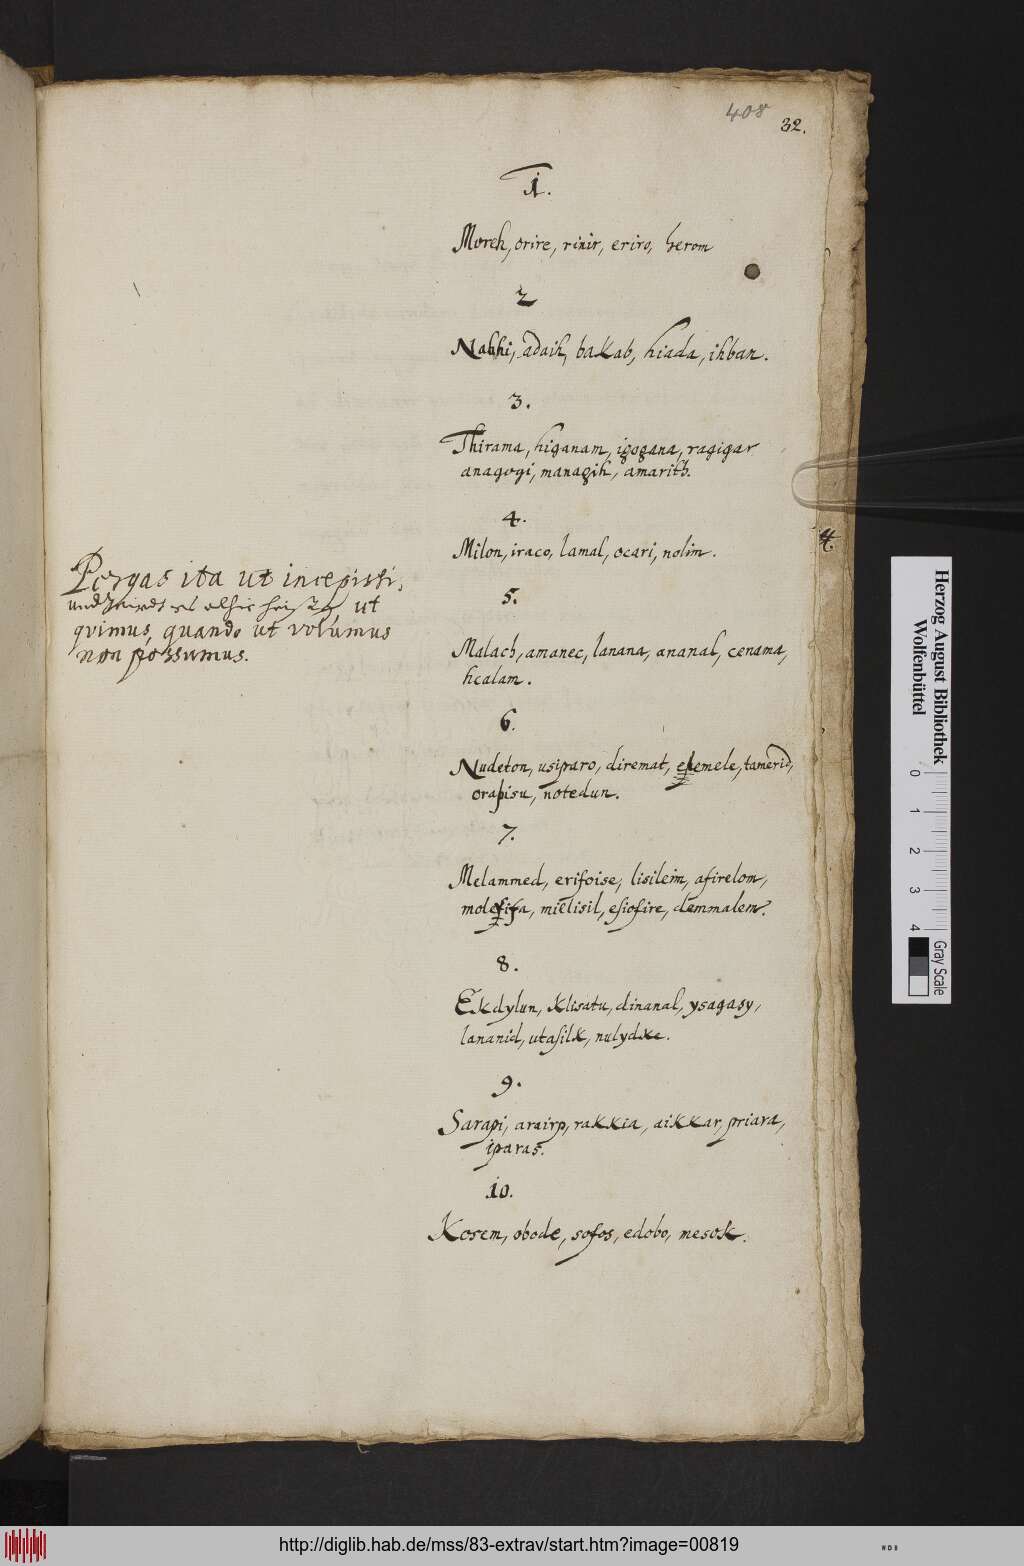 408
32.
1.
Morch, orire, rinir, eriro, herom
2
Nabhi, adaih, bakab, hiada, ihban.
3.
Thirama, higanam, igogana, ragigar
anagogi, managih, amarith.
4.
Milon, iraco, lamal, ocari, nolim.
4.
Pergas ita ut incepisti,
und
ut
qvimus, quando ut volumus
non possumus.
5.
Malach, amanec, lanana, ananal, cenama,
hcalam.
6.
Nudeton, usiparo, diremat, elemele, tamerid,
orapisu, notedun.
7.
Melammed, erifoise, lisileim, afirelom,
molefifa, mielisil, esiofire, demmalem.
8.
Ekdylun, Klisatu, dinanal, ysagasy,
lananid, utasilk, nulydke.
9.
Sarapi, arairp, rakkia, aikkar, priara,
iparas.
10.
Kosem, obode, sofos, edobo, mesok.
Herzog August Bibliothek
Wolfenbüttel
0 1 2 3 4
Gray Scale
http://diglib.hab.de/mss/83-extrav/start.htm?image=00819